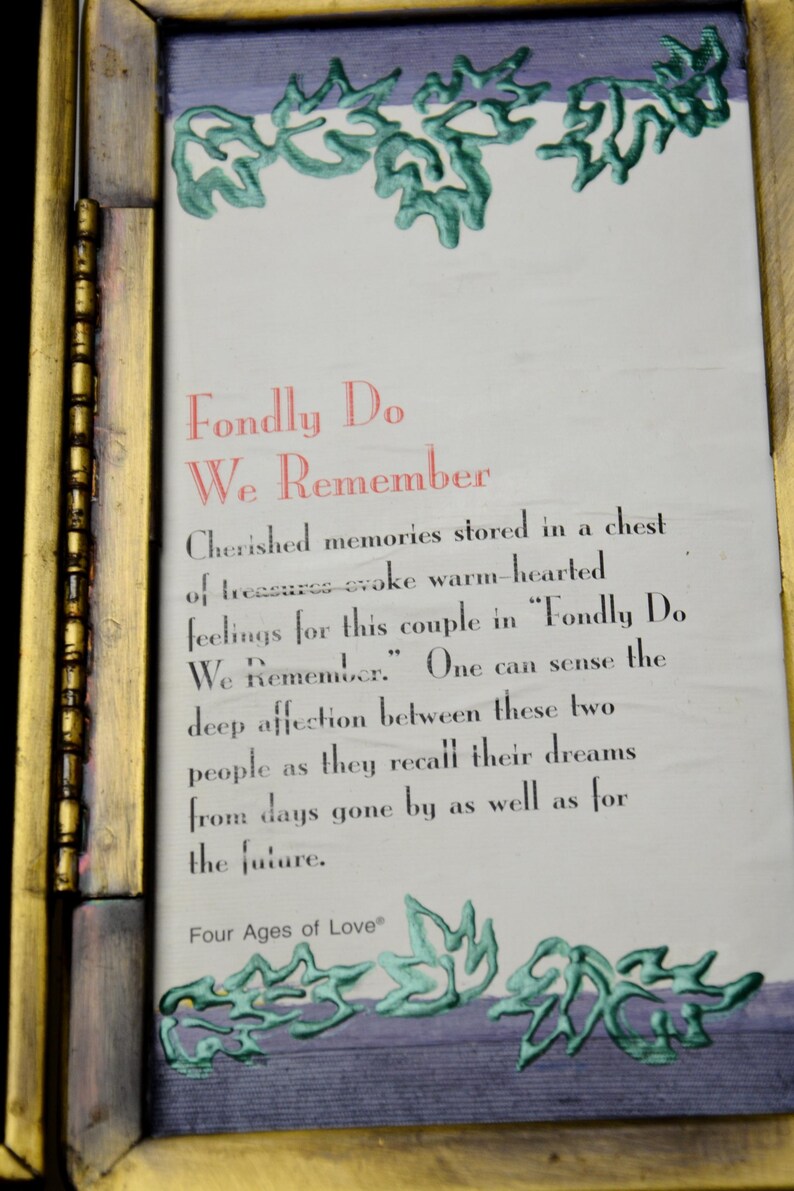 Fondly Do
We Remember
Cherished memories stored in a chest
of treasures evoke warm-hearted
feelings for this couple in “Fondly Do
We Remember.” One can sense the
deep affection between these two
people as they recall their dreams
from days gone by as well as for
the future.
Four Ages of Love®